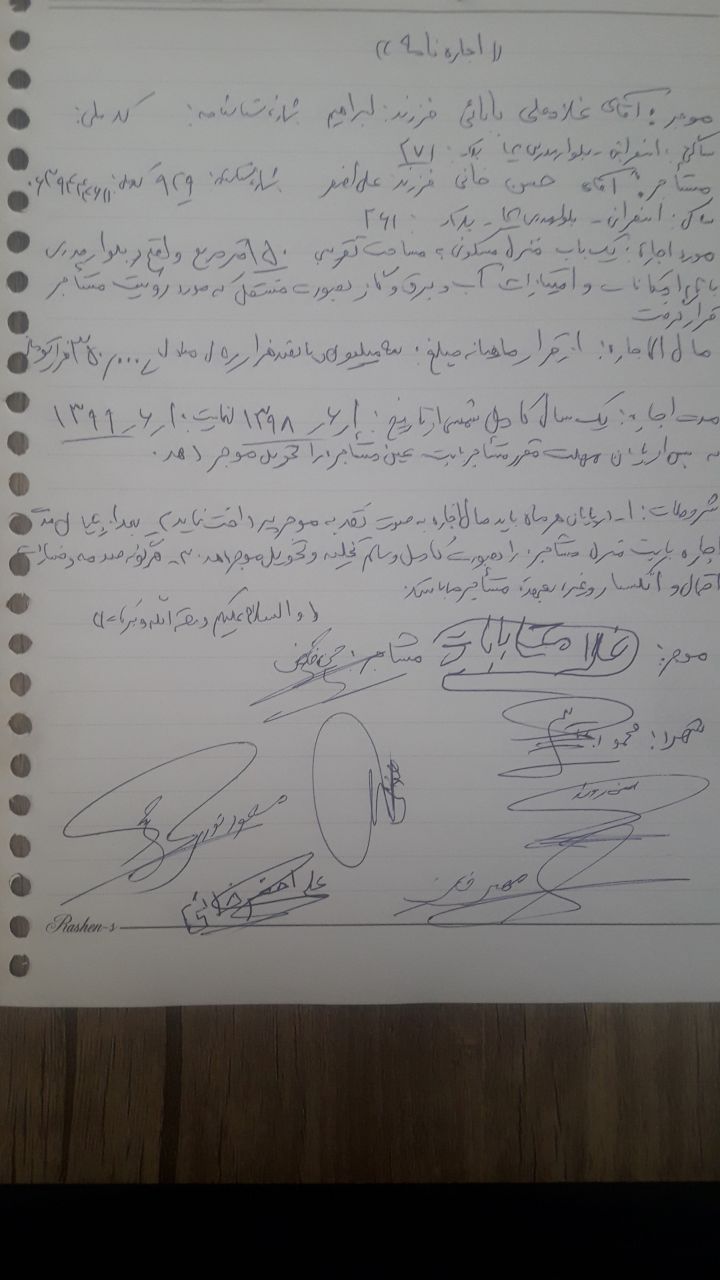 (( اجاره نامه ))
موجر: آقای غلامعلی بابائی فرزند: ابراهیم شماره شناسنامه: کد ملی:
ساکن: اسفراین - بلوار مدرس پلاک: ۲۷۱
مستأجر: آقای حسن خانی فرزند: علی اصغر شماره شناسنامه: ۹۲۹ کد ملی:
ساکن: اسفراین - بلوار مدرس - پلاک: ۲۶۱
مورد اجاره: یک باب منزل مسکونی به مساحت تقریبی ۱۵۰ متر مربع واقع در بلوار مدرس
با تمام امکانات و امتیازات آب و برق و گاز بصورت مستقل که مورد رویت مستأجر
قرار گرفت
مال الاجاره: از قرار ماهیانه مبلغ: سه میلیون پانصد هزار ریال معادل
مدت اجاره: یک سال کامل شمسی از تاریخ: ۱ر۶ر۱۳۹۸ لغایت: ۱ر۶ر۱۳۹۹
که پس از پایان مهلت مقرر مستأجر بایست عین مستأجره را تحویل موجر دهد.
مشروطات: ۱- در پایان هر ماه باید مال اجاره به صورت نقد به موجر پرداخت نماید ۲- بعد از پایان مدت
اجاره بایست منزل مستأجره را بصورت کامل و سالم تخلیه و تحویل موجر دهد. ۳- هرگونه صدمه و خسارات
اتصال و انکسار و غیره بعهده مستأجر می باشد.
((والسلام علیکم و رحمة الله و برکاته))
موجر: غلامعلی بابائی مستأجر: حسن خانی
شهود: محمود
مسعود نوری
علی اصغر خانی
Rashen-s